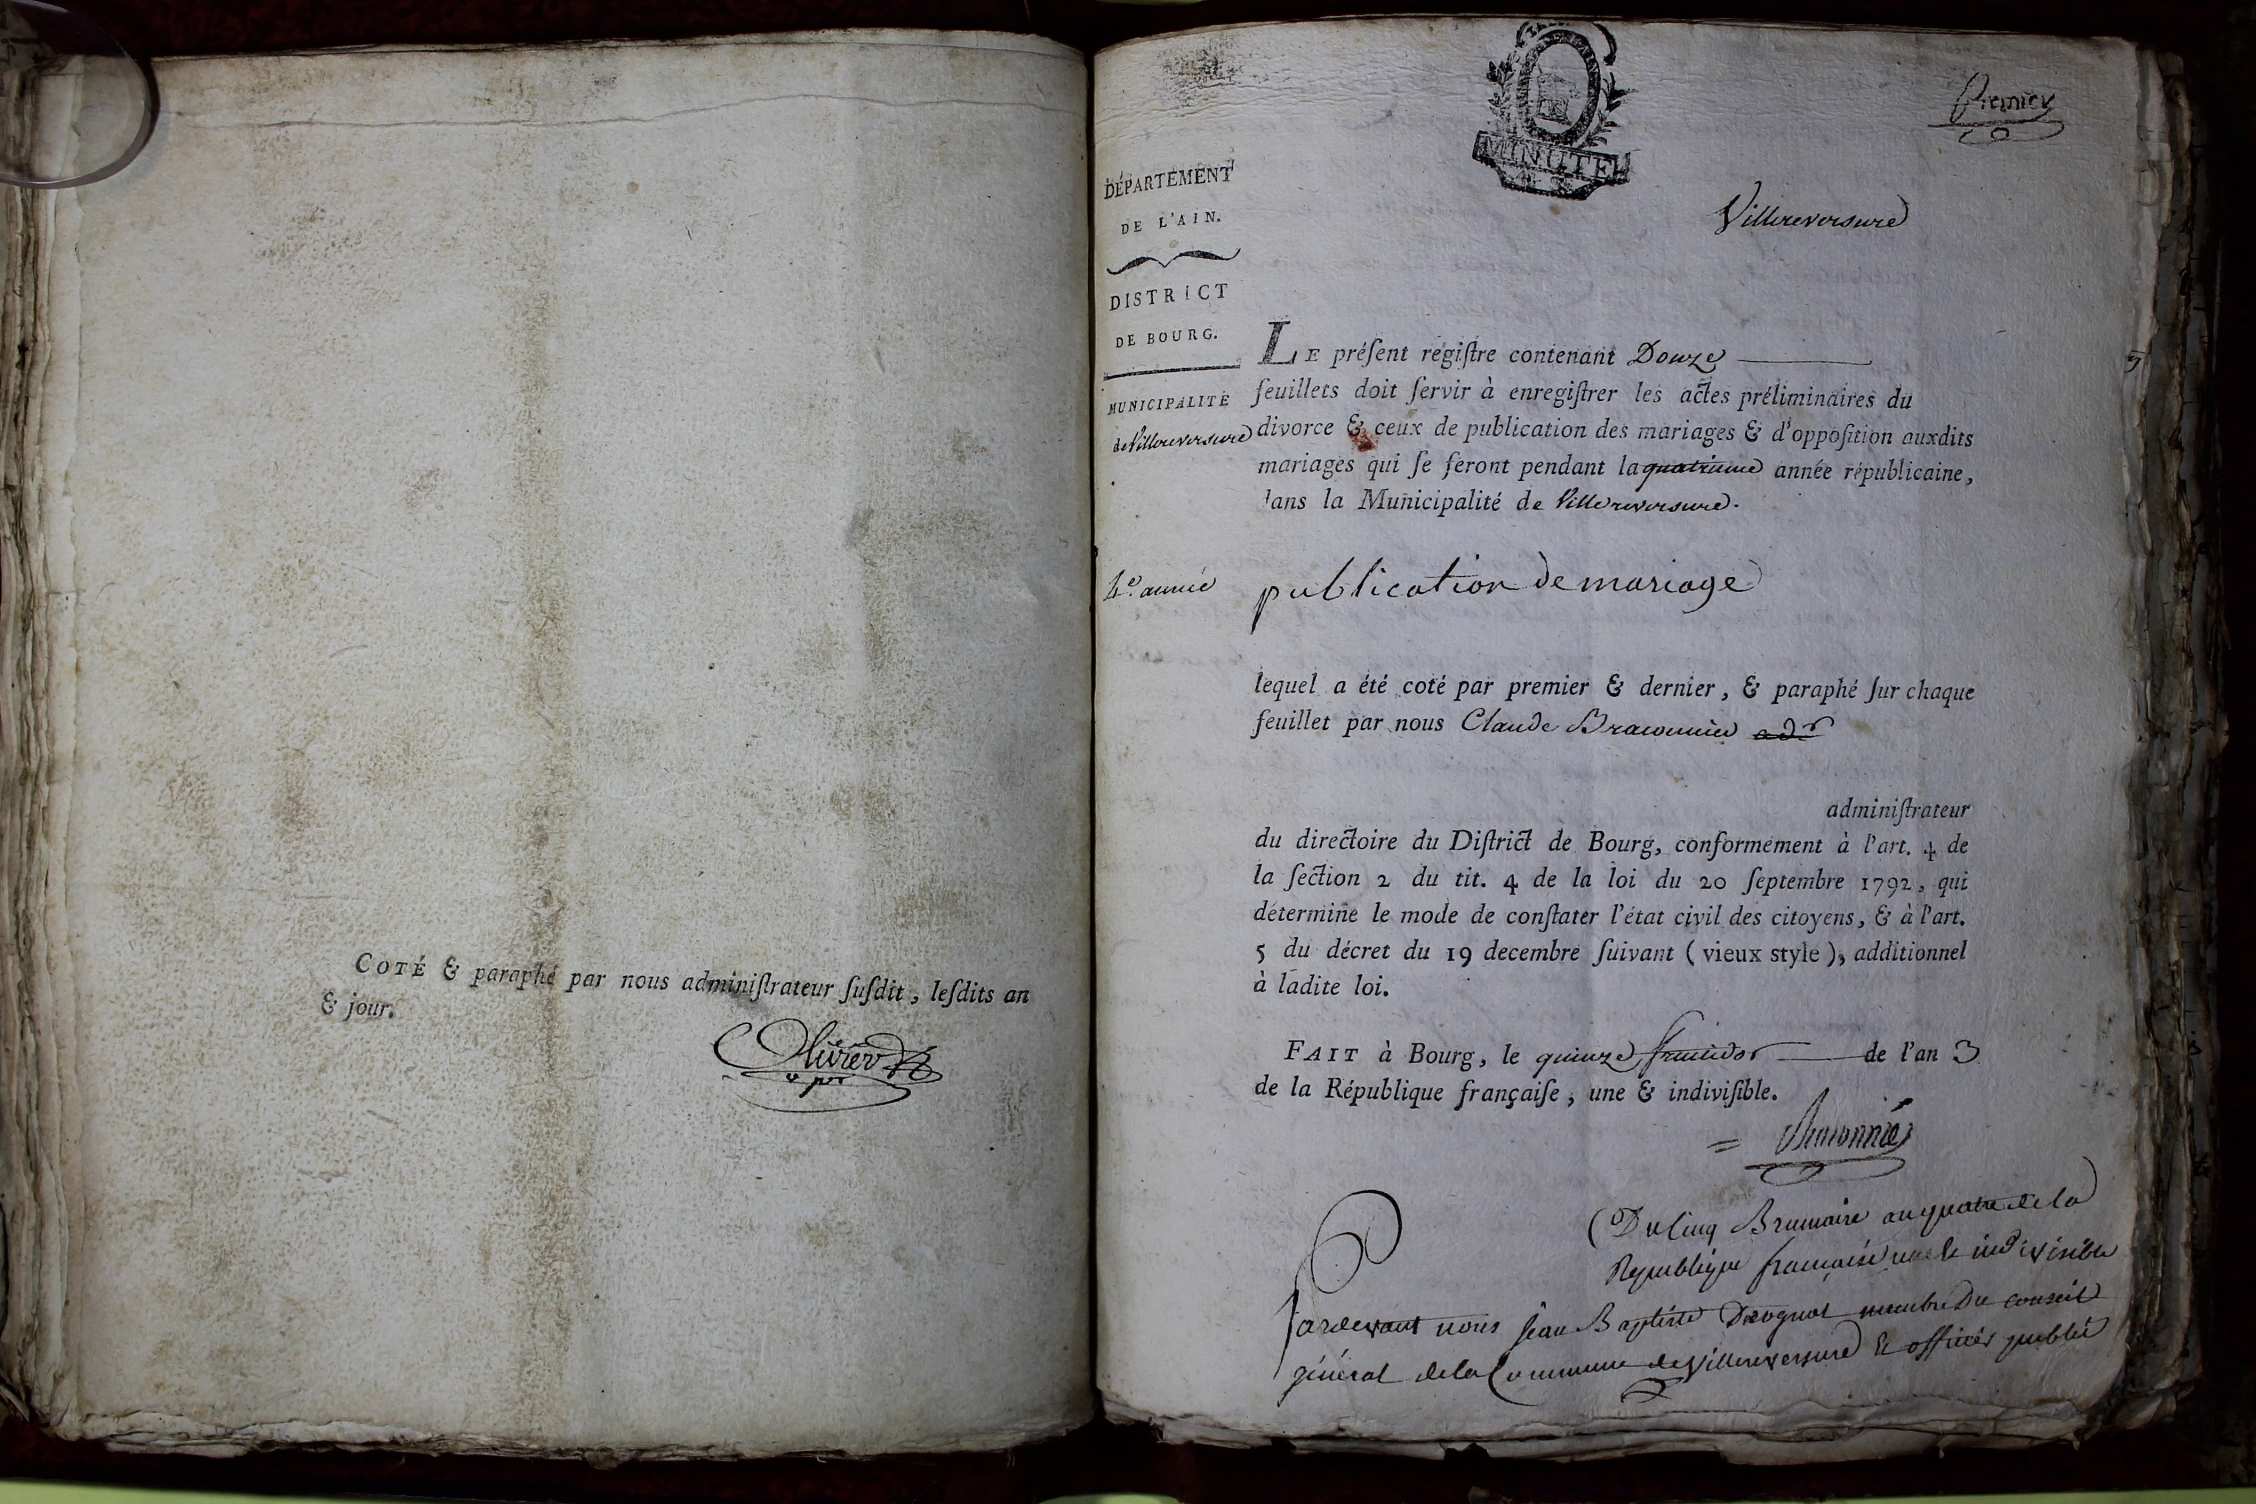 COTÉ & paraphé par nous adminiſtrateur ſuſdit, leſdits an
& jour.
Olivier
v pr
MINUTE
Premier
Villereversure
DÉPARTEMENT
DE L'AIN.
DISTRICT
DE BOURG.
MUNICIPALITÉ
de Villereversure
LE préſent régiſtre contenant Douze
feuillets doit ſervir à enregiſtrer les actes préliminaires du
divorce & ceux de publication des mariages & d'oppoſition auxdits
mariages qui ſe feront pendant la quatrieme année républicaine,
dans la Municipalité de Villereversure.
4e. année
publication de mariage
lequel a été coté par premier & dernier, & paraphé ſur chaque
feuillet par nous Claude Braconnier adr
adminiſtrateur
du directoire du Diſtrict de Bourg, conformément à l'art. 4 de
la ſection 2 du tit. 4 de la loi du 20 ſeptembre 1792, qui
détermine le mode de conſtater l'état civil des citoyens, & à l'art.
5 du décret du 19 decembre ſuivant (vieux style), additionnel
à ladite loi.
FAIT à Bourg, le quinze fructidor de l'an 3
de la République françaiſe, une & indiviſible.
Braconnier
Du Cinq Brumaire an quatre de la
Republique francaise une & indivisible
Pardevant nous jean Baptiste membre du conseil
général de la Commune de Villereversure & officier public